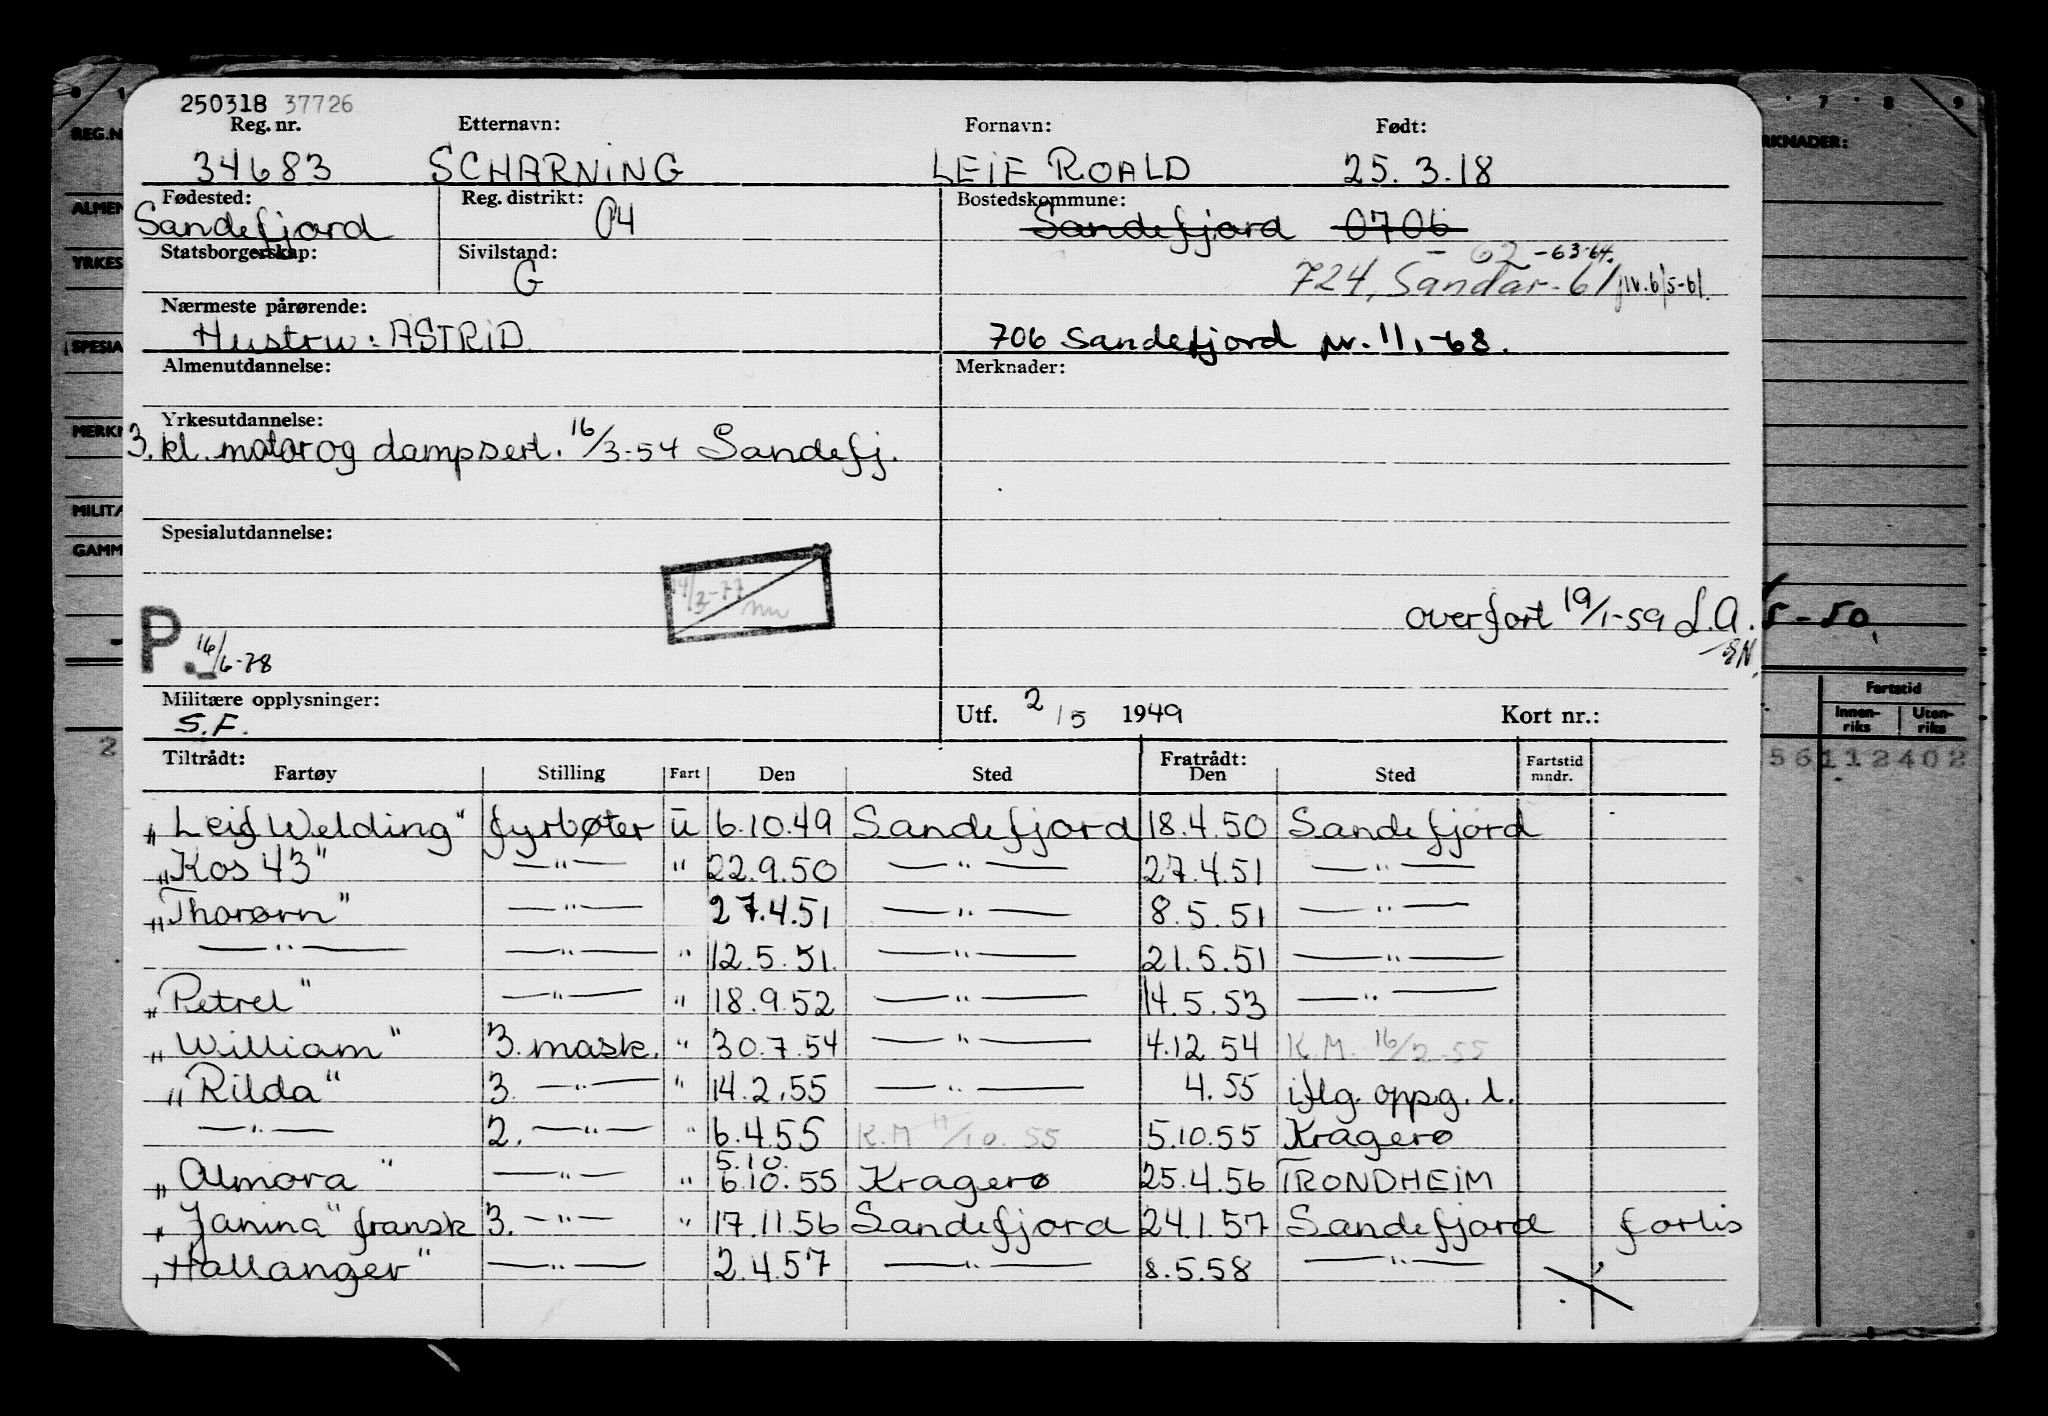 250318 37726
Reg. nr. Etternavn: Fornavn: Født:
34683 SCHARNING LEIF ROALD 25. 3.18
Fødested: Reg. distrikt: Bostedskommune:
Sandefjord 04 Sandefjord 0706
Statsborgerskap: Sivilstand: - 62 -63-64.
G 724, Sandar - 61
Nærmeste pårørende:
Hustru: ASTRID 706 Sandefjord pr. 1/1-68.
Almenutdannelse: Merknader:
Yrkesutdannelse:
3. kl. motor og dampsert. 16/3-54 Sandefj.
Spesialutdannelse:
14/3-77
P. 16/6-78 overført 19/1-59 L.A.
5-50
Militære opplysninger: Utf. 2/5 1949 Kort nr.:
S.F.
Tiltrådt: Fratrådt:
Fartøy Stilling Fart Den Sted Den Sted Fartstid mndr.
"Leif Welding" fyrbøter u 6.10.49 Sandefjord 18.4.50 Sandefjord
"Kos 43" —"— " 22.9.50 —"— 27.4.51 —"—
"Thorørn" —"— 27.4.51 —"— 8.5.51 —"—
—"— —"— " 12.5.51. —"— 21.5.51 —"—
"Petrel" —"— " 18.9.52 —"— 14.5.53 —"—
"William" 3. mask. " 30.7.54 —"— 4.12.54 K.M. 16/2-55
"Rilda" 3. —"— " 14.2.55 —"— 4.55 iflg. oppg. l.
—"— 2. —"— " 6.4.55 K.M 11/10.55 5.10.55 Kragerø
5.10.
"Almora" —"— " 6.10.55 Kragerø 25.4.56 TRONDHEIM
"Janina" fransk 3. —"— " 17.11.56 Sandefjord 24.1.57 Sandefjord forlis
"Hallanger" —"— 2.4.57 —"— 8.5.58 —"—
REG.N
ALMEN
YRKES
SPESIA
MERKN
MILITÆ
GAMM
2
7 8 9
RKNADER:
Fartstid
Innen-riks Uten-riks
56112402